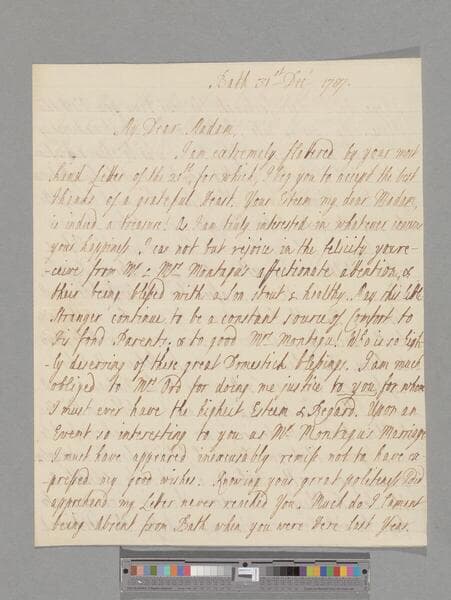 Bath 31st Decr 1787.
My Dear Madam,
I am extremely flatered by your most
kind letter of the 21st, for which, I beg you to accept the best
thanks of a grateful Heart. Your Esteem my dear Madam,
is indeed a treasure! & I am truly interested in whatever
your happiness. I can not but rejoice in the felicity you re-
-ceive from Mr & Mrs Montagu's affectionate attention, &
their being blessed with a Son stout & healthy. May this little
Stranger continue to be a constant source of Comfort to
His fond Parents, & to good Mrs Montagu! Who is so high-
-ly deserving of these great Domestick blessings. I am much
obliged to Mrs Ord for doing me justice to you, for whom
I must ever have the highest Esteem & Regard. Upon an
Event so interesting to you as Mr Montagu's Marriage
I must have appeared inexcusably remiss not to have ex-
-pressed my good wishes. Knowing your great politeness I did
apprehend my Letter never reached You. Much do I lament
being absent from Bath when you were Here last Year.